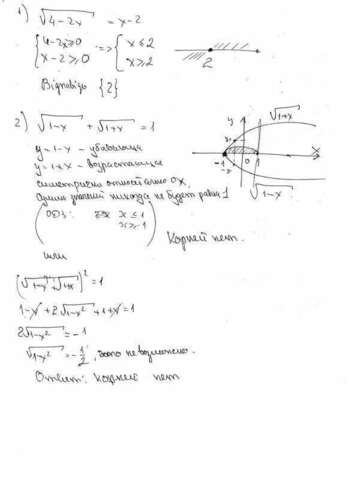 1) √(4-2x) = x-2
{4-2x≥0 {x-2≥0 => {x≤2 {x≥2
2
Відповідь {2}
2) √(1-x) + √(1+x) = 1
y=1-x - убывающая
y=1+x - возрастающая
симметрично относительно Ox,
сумма значений никогда не будет равна 1
(ОДЗ: x≤1 x≥-1)
Корней нет.
y √(1+x)
-1 0 1 x
√(1-x)
или
(√(1-x) + √(1+x))² = 1
1-x+2√(1-x²)+1+x=1
2√(1-x²) = -1
√(1-x²) = -1/2, это невозможно.
Ответ: корней нет